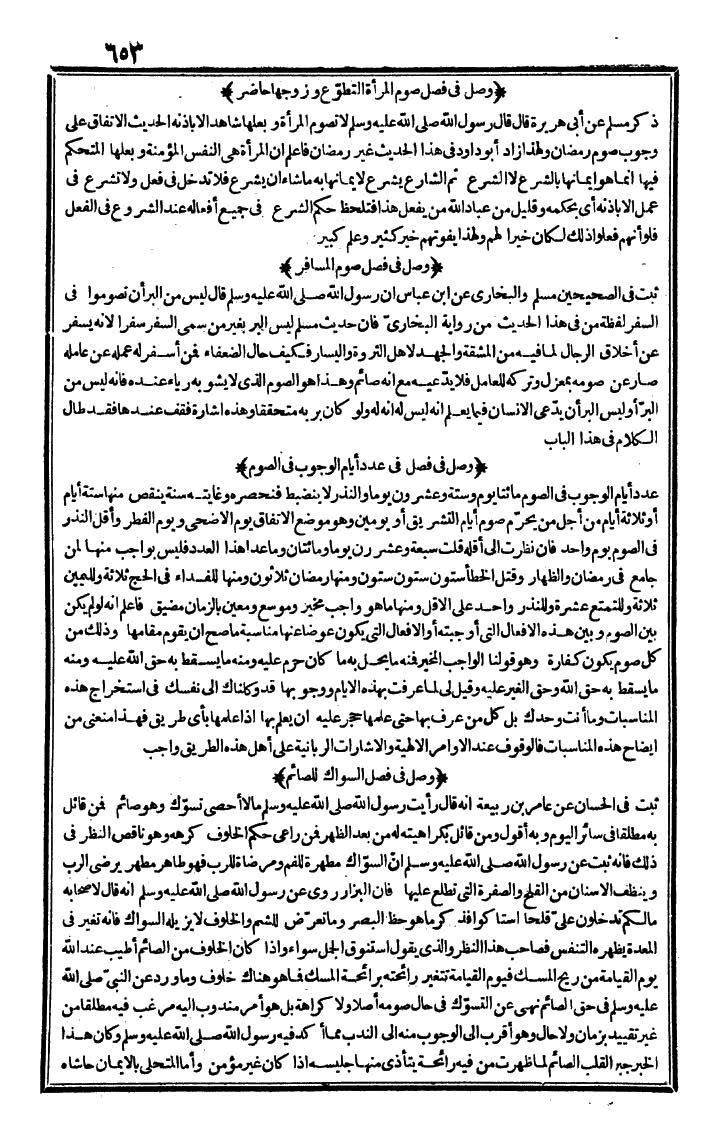 ٦٥٣
﴿وصل فى فصل صوم المرأة التطوّع وزوجها حاضر﴾
ذكر مسلم عن أبى هريرة قال قال رسول الله صلى الله عليه وسلم لا تصوم المرأة وبعلها شاهد الا باذنه الحديث الاتفاق على
وجوب صوم رمضان ولهذا زاد أبو داود فى هذا الحديث غير رمضان فاعلم ان المرأة هى النفس المؤمنة وبعلها المتحكم
فيها انما هو ايمانها بالشرع لا الشرع ثم الشارع يشرع لايمانها به ماشاء ان يشرع فلا تدخل فى فعل ولا تشرع فى
عمل الا باذنه أى بحكمه وقليل من عباد الله من يفعل هذا فتلحظ حكم الشرع فى جميع أفعاله عند الشروع فى الفعل
فلو أنهم فعلوا ذلك لكان خيرا لهم ولهذا يفوتهم خير كثير وعلم كبير
﴿وصل فى فصل صوم المسافر﴾
ثبت فى الصحيحين مسلم والبخارى عن ابن عباس ان رسول الله صلى الله عليه وسلم قال ليس من البر أن تصوموا فى
السفر لفظة من فى هذا الحديث من رواية البخارىّ فان حديث مسلم ليس البر بغير من سمى السفر سفرا لانه يسفر
عن أخلاق الرجال لما فيه من المشقة والجهد لاهل الثروة واليسار فكيف حال الضعفاء فمن أسفر له عمله عن عامله
صار عن صومه بمعزل وتركه للعامل فلا يدّعيه مع انه صائم وهذا هو الصوم الذى لا يشوبه رياء عنده فانه ليس من
البرّ أو ليس البر أن يدّعى الانسان فيما يعلم انه ليس له انه له ولو كان بربه متحققا وهذه اشارة فقف عندها فقد طال
الكلام فى هذا الباب
﴿وصل فى فصل فى عدد أيام الوجوب فى الصوم﴾
عدد أيام الوجوب فى الصوم مائتا يوم وستة وعشرون يوما والنذر لا ينضبط فنحصره وغايته سنة ينقص منها ستة أيام
أو ثلاثة أيام من أجل من يحرّم صوم أيام التشريق أو يومين وهو موضع الاتفاق يوم الاضحى ويوم الفطر وأقل النذر
فى الصوم يوم واحد فان نظرت الى أقله قلت سبعة وعشرون يوما ومائتان وما عدا هذا العدد فليس بواجب منها لمن
جامع فى رمضان والظهار وقتل الخطأ ستون ستون ستون ومنها رمضان ثلاثون ومنها للفداء فى الحج ثلاثة ولليمين
ثلاثة وللتمتع عشرة وللنذر واحد على الاقل ومنها ما هو واجب مخير وموسع ومعين بالزمان مضيق فاعلم انه لو لم يكن
بين الصوم وبين هذه الافعال التى أوجبته أو الافعال التى يكون عوضا عنها مناسبة ما صح ان يقوم مقامها وذلك من
كل صوم يكون كفارة وهو قولنا الواجب المخير فمنه ما يحل به ما كان حرم عليه ومنه ما يسقط به حق الله عليه ومنه
ما يسقط به حق الله وحق الغير عليه وقيل لى لما عرفت بهذه الايام ووجوبها قد وكلناك الى نفسك فى استخراج هذه
المناسبات وما أنت وحدك بل كل من عرف بها حتى علمها حجر عليه ان يعلم بها اذا علمها بأى طريق فهذا منعنى من
ايضاح هذه المناسبات فالوقوف عند الاوامر الالهية والاشارات الربانية على أهل هذه الطريق واجب
﴿وصل فى فصل السواك للصائم﴾
ثبت فى الحسان عن عامر بن ربيعة انه قال رأيت رسول الله صلى الله عليه وسلم مالا أحصى تسوّك وهو صائم فمن قائل
به مطلقا فى سائر اليوم وبه أقول ومن قائل بكراهيته له من بعد الظهر فمن راعى حكم الخلوف كرهه وهو ناقص النظر فى
ذلك فانه ثبت عن رسول الله صلى الله عليه وسلم انّ السوّاك مطهرة للفم ومرضاة للرب فهو طاهر مطهر يرضى الرب
وينظف الاسنان من القلح والصفرة التى تطلع عليها فان البزار روى عن رسول الله صلى الله عليه وسلم انه قال لاصحابه
مالكم تدخلون علىّ قلحا استاكوا فذكر ما هو حظ البصر وما تعرّض للشم والخلوف لا يزيله السواك فانه تغير فى
المعدة يظهره التنفس فصاحب هذا النظر والذى يقول استنوق الجل سواء واذا كان الخلوف من الصائم أطيب عند الله
يوم القيامة من ريح المسك فيوم القيامة تتغير رائحته برائحة المسك فما هو هناك خلوف وما ورد عن النبىّ صلى الله
عليه وسلم فى حق الصائم نهى عن التسوّك فى حال صومه أصلا ولا كراهة بل هو أمر مندوب اليه مرغب فيه مطلقا من
غير تقييد بزمان ولا حال وهو أقرب الى الوجوب منه الى الندب مما أكد فيه رسول الله صلى الله عليه وسلم وكان هذا
الخبر جبر القلب الصائم لما ظهرت من فيه رائحة يتأذى منها جليسه اذا كان غير مؤمن وأما المتحلى بالايمان حاشاه